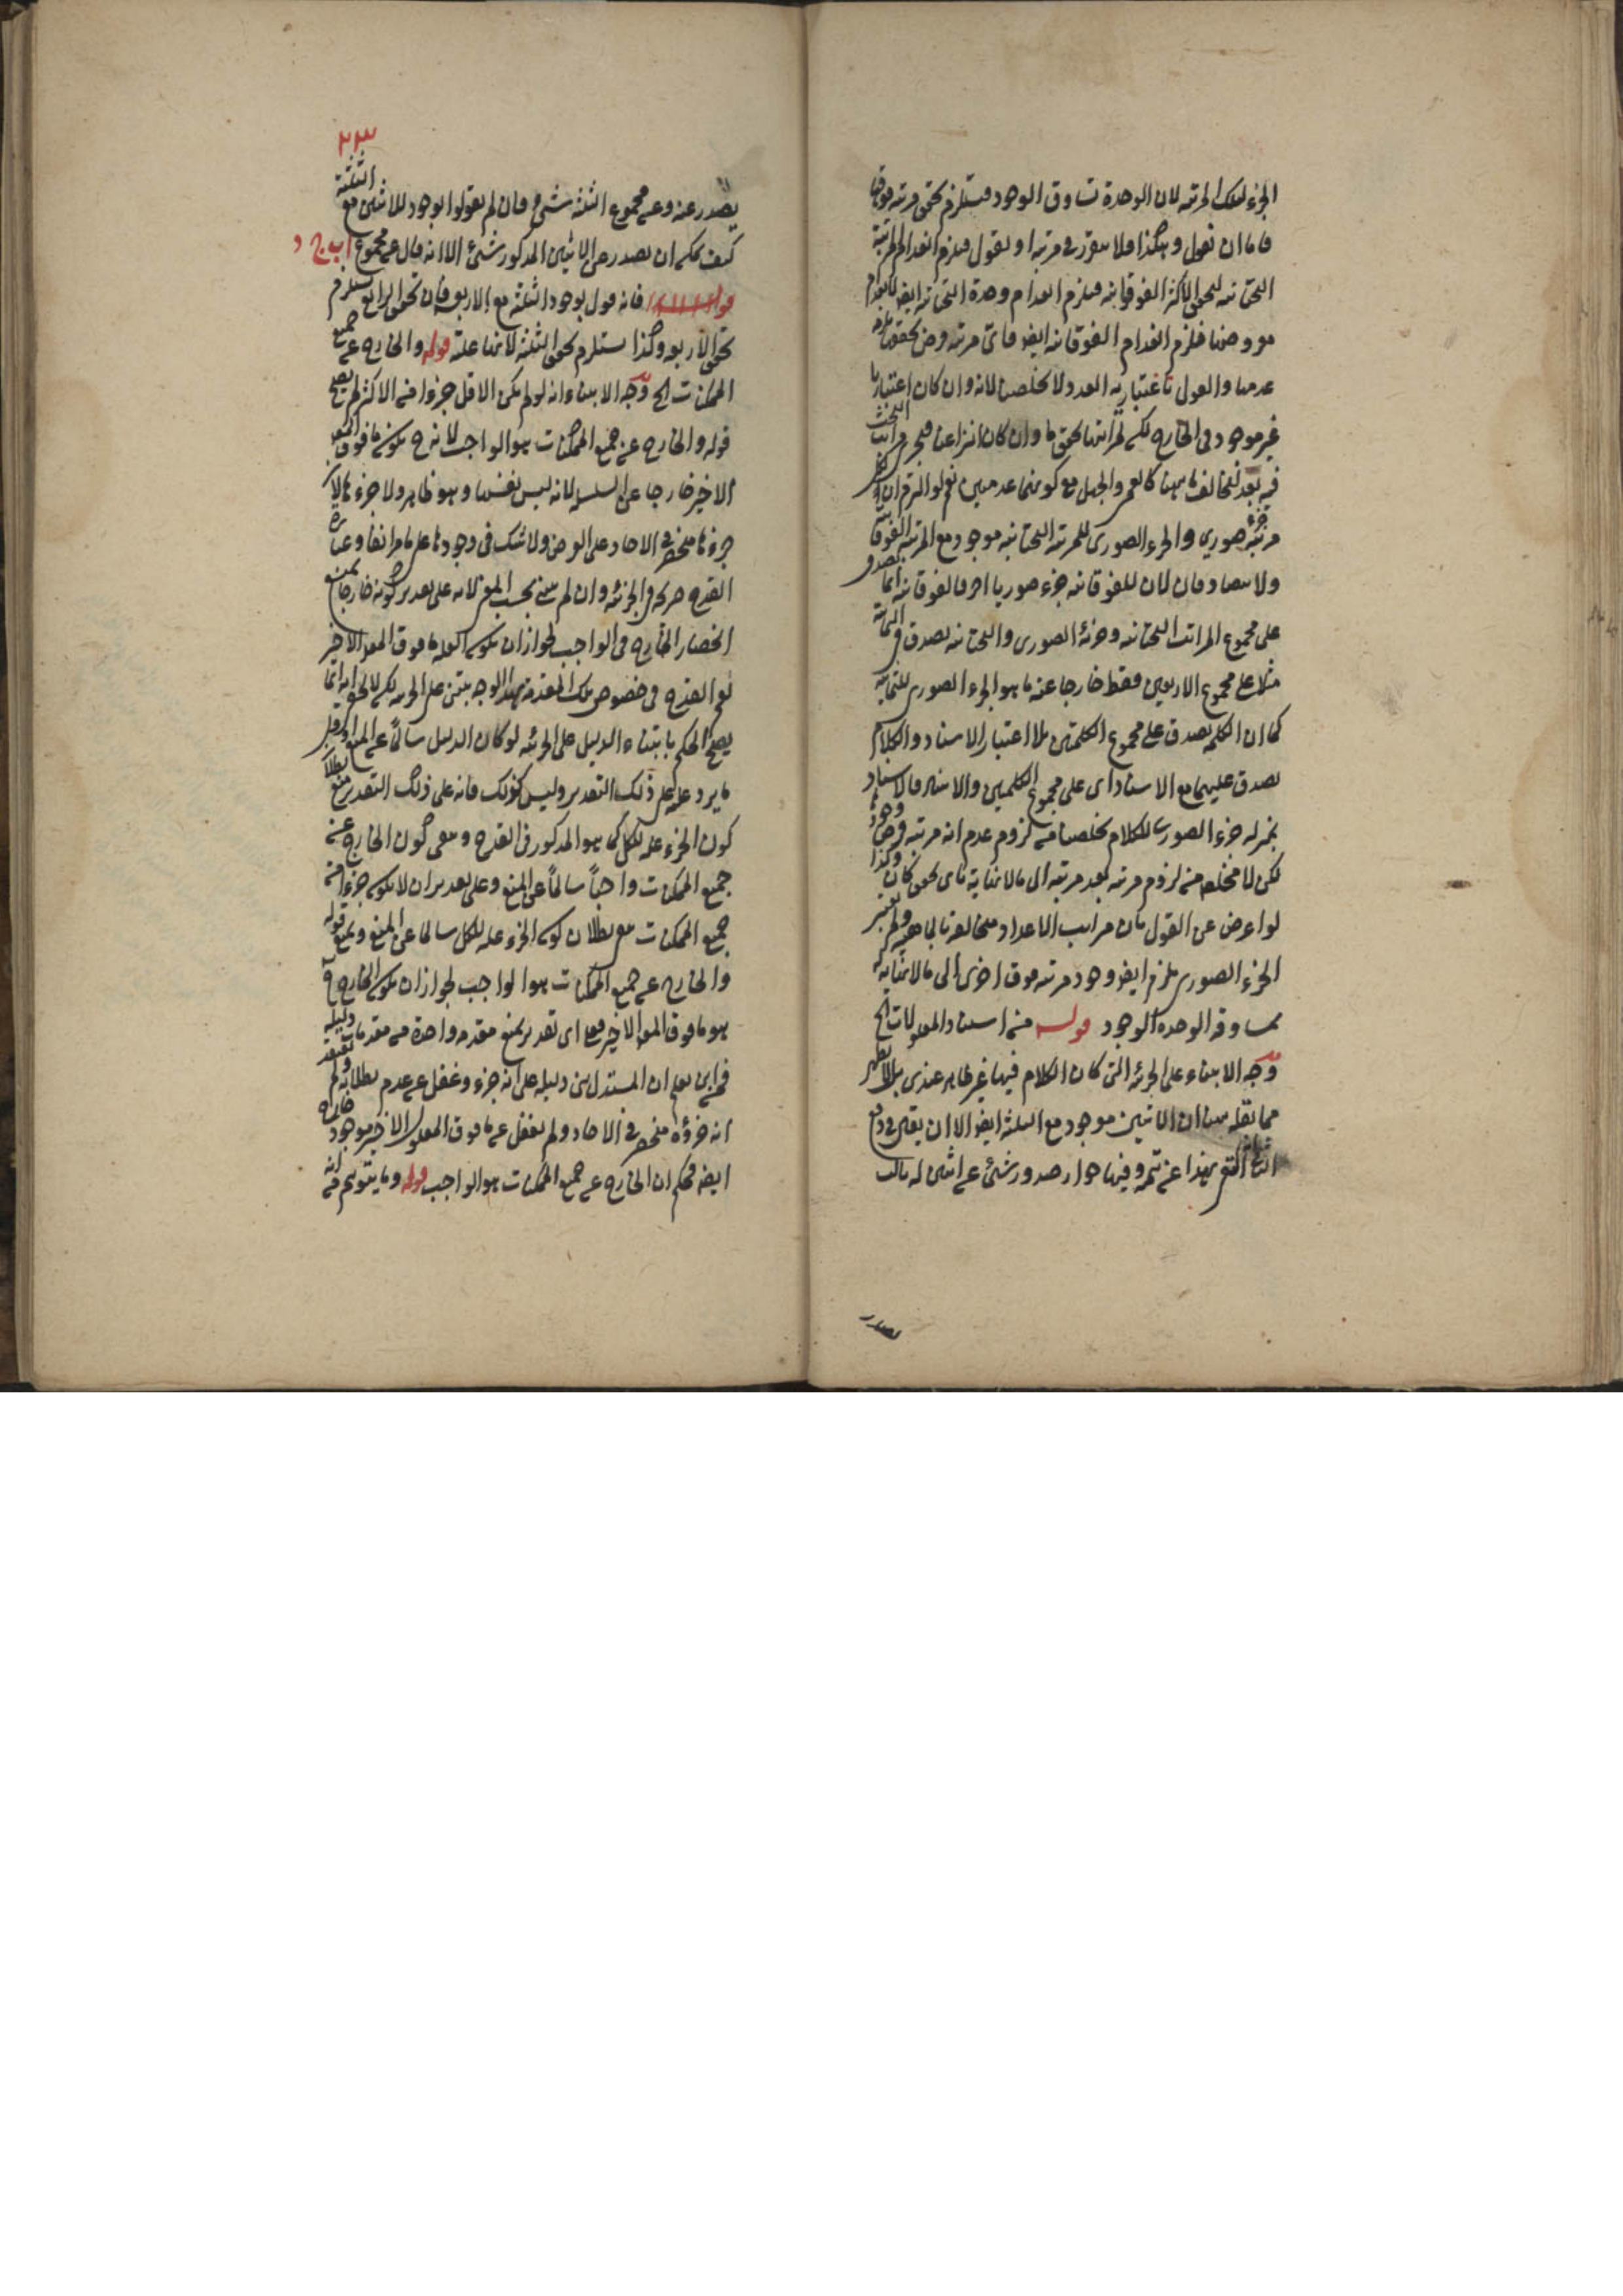 الجزء لتلك المرتبة لان الوحدة تساوق الوجود فيستلزم تحقق مرتبة فوقها
فاما ان نقول وهكذا فلا يتقرر مرتبة او نقول فيلزم انعدام المرتبة
التحتانية لتحقق الاكثر الفوقانية فيلزم انعدام وحدة التحتانية ايضا
فيلزم انعدام الفوقانية ايضا فاى مرتبة فرض تحققها
عدمها والقول باعتبارية العدد لا يخلصنا لانه وان كان اعتباريا
غير موجود فى الخارج لكن لمراتبها تحقق ما وان كان انتزاعيا فيجرى البحث
فيه بعد تخالف كالعمى والجهل مع كونهما عدميين نعم لو التزم ان لكل
مرتبة جزء صوري والجزء الصورى للمرتبة التحتانية موجود مع المرتبة الفوقانية
ولا فان كان للفوقانية جزء صوريا اخر فالفوقانية انما تصدق
على مجموع المراتب التحتانية وجزئه الصورى والتحتانية تصدق فى الثمانية
مثلا على مجموع الاربعين فقط خارجا عنه ما هو الجزء الصورى للثمانية
كما ان الكلمة يصدق على مجموع الكلمتين بلا اعتبار الاسناد والكلام
يصدق عليهما مع الاسناد اى على مجموع الكلمتين والاسناد فالاسناد
بمنزلة جزء الصورى للكلام يخلصنا من لزوم عدم اية مرتبة فرض وجودها
لكن لا مخلص من لزوم مرتبة بعد مرتبة الى ما لا يتناهى باى تحقق كان وكذا
لو اعرض عن القول بان مراتب الاعداد متخالفة بالماهية ولم يعتبر
الجزء الصورى يلزم ايضا وجود مرتبة فوق اخرى الى ما لا يتناهى
مساوقة الوحدة الوجود قوله من استناد المعلولات الخ
وجه الابتناء على الجزئية التى كان الكلام فيها غير ظاهر عندى بل الا يظهر
مما نقله هنا ان الاثنين موجود مع الثلثة ايضا الا ان يقال فى دفع
هذا عن ثمه وفيها جواز صدور شئ عن اثنين له ثالث
يصدر
٢٣
يصدر عنه وعن مجموع الثلثة شئ فان لم يقولوا بوجود للاثنين مع الثلثة
كيف يمكن ان يصدر عن الاثنين المذكور شئ الا انه قال عن مجموع ا ب ج د
فانه قول بوجود الثلثة مع الاربعة فان تحقق الرابع يستلزم
تحقق الاربعة وكذا يستلزم تحقق الثلثة لانها علته قوله والخارج عن جميع
الممكنات الخ وجه الابتناء انه لو لم يكن الاقل جزءا من الاكثر لم يصح
قوله والخارج عن جميع الممكنات هو الواجب لانه ح يكون ما فوق المعلول
الاخير خارجا عن السلسلة لانه ليس نفسها وهو ظاهر ولا جزءها لان
جزءها منحصر فى الاحاد على الفرض ولا شك فى وجودها على ما مر انفا وعبارة
القدح صريحة فى الجزئية وان لم يبتن بحسب المعنى لانه على تقدير كونه خارجا يمنع
انحصار الخارج فى الواجب لجواز ان يكون العلة ما فوق المعلول الاخير
نعم القدح فى خصوص تلك المقدمة بهذا الوجه يبتنى على الجزئية لكن لا يخفى انه انما
يصح الحكم بابتناء الدليل على الجزئية لو كان الدليل سالما عن المنع
ما يرد عليه على ذلك التقدير وليس كذلك فانه على ذلك التقدير يمنع بطلان
كون الجزء علة للكل كما هو المذكور فى القدح ومع كون الخارج عن
جميع الممكنات واجبا سالما عن المنع وعلى تقدير ان لا يكون جزءا من
جميع الممكنات مع بطلان كون الجزء علة للكل سالما عن المنع ويمنع قوله
والخارج عن جميع الممكنات هو الواجب لجواز ان يكون الخارج ح
هو ما فوق المعلول الاخير فعلى اى تقدير يمنع مقدمة واحدة من مقدمات دليله
فمن اين يعلم ان المستدل بنى دليله على انه جزء وغفل عن عدم بطلانه ولم يعتقد
انه جزؤه منحصر فى الاحاد ولم يغفل عن ما فوق المعلول الاخير موجود خارج
ايضا فحكم ان الخارج عن جميع الممكنات هو الواجب قوله وما يتوهم من انه